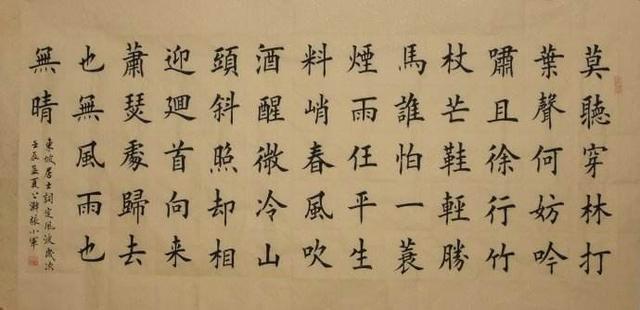 莫聽穿林打
葉聲何妨吟
嘯且徐行竹
杖芒鞋輕勝
馬誰怕一蓑
煙雨任平生
料峭春風吹
酒醒微冷山
頭斜照却相
迎迴首向来
蕭瑟處歸去
也無風雨也
無晴
東坡居士詞定風波歲次
壬辰孟夏公張小軍